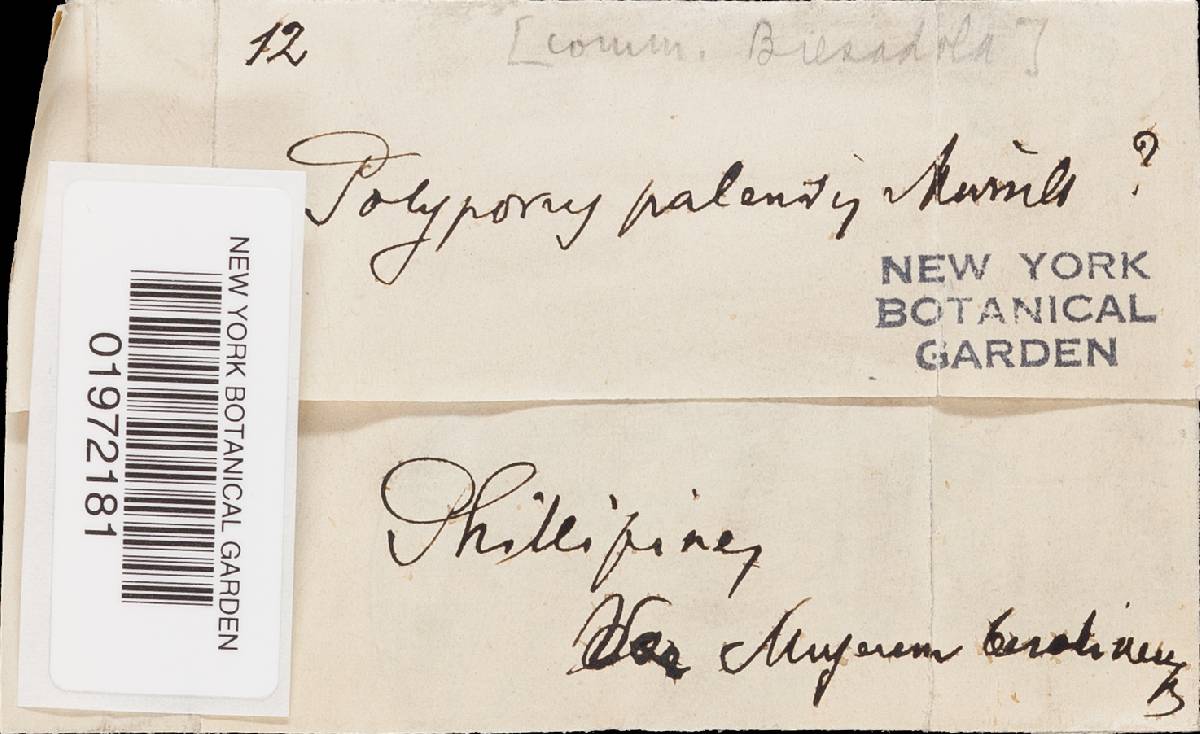 12
[comm. Bresadola]
Polyporus palensis Murrill ?
NEW YORK
BOTANICAL
GARDEN
Phillipines
Museum Berolinens
NEW YORK BOTANICAL GARDEN
01972181